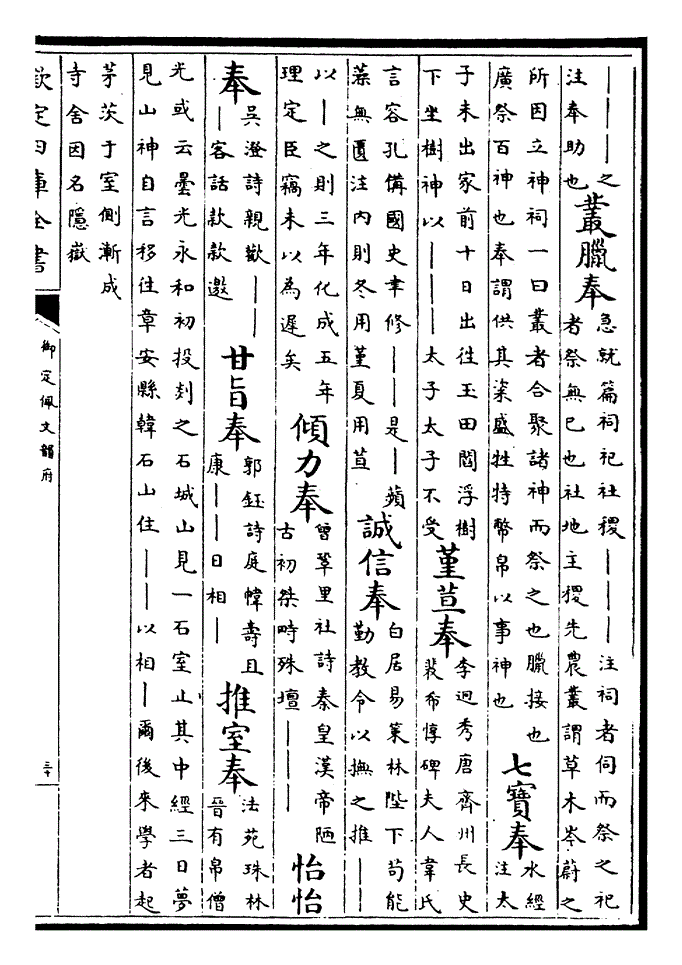 ————之
注奉助也
叢臘奉
急就篇祠祀社稷————注祠者伺而祭之祀
者祭無已也社地主稷先農叢謂草木岑蔚之
所因立神祠一曰叢者合聚諸神而祭之也臘接也
廣祭百神也奉謂供其粢盛牲特幣帛以事神也
七寶奉
水經
注太
子未出家前十日出往王田閻浮樹
下坐樹神以———太子太子不受
菫荁奉
李迥秀唐齊州長史
裴希惇碑夫人韋氏
言容孔備國史聿修——是—蘋
蘩無匱注内則冬用菫夏用荁
誠信奉
白居易策林陛下苟能
勤教令以撫之推——
以—之則三年化成五年
理定臣竊未以為遲矣
傾力奉
曾鞏里社詩秦皇漢帝陋
古初桀畤殊壇———
怡怡
奉
吳澄詩親歡——
—客話款款邀
甘旨奉
郭鈺詩庭幃壽且
康——日相—
推室奉
法苑珠林
晉有帛僧
光或云曇光永和初投剡之石城山見一石室止其中經三日夢
見山神自言移往章安縣韓石山住——以相—爾後來學者起
茅茨于室側漸成
寺舍因名隱嶽
欽定四庫全書
御定佩文韻府
三十